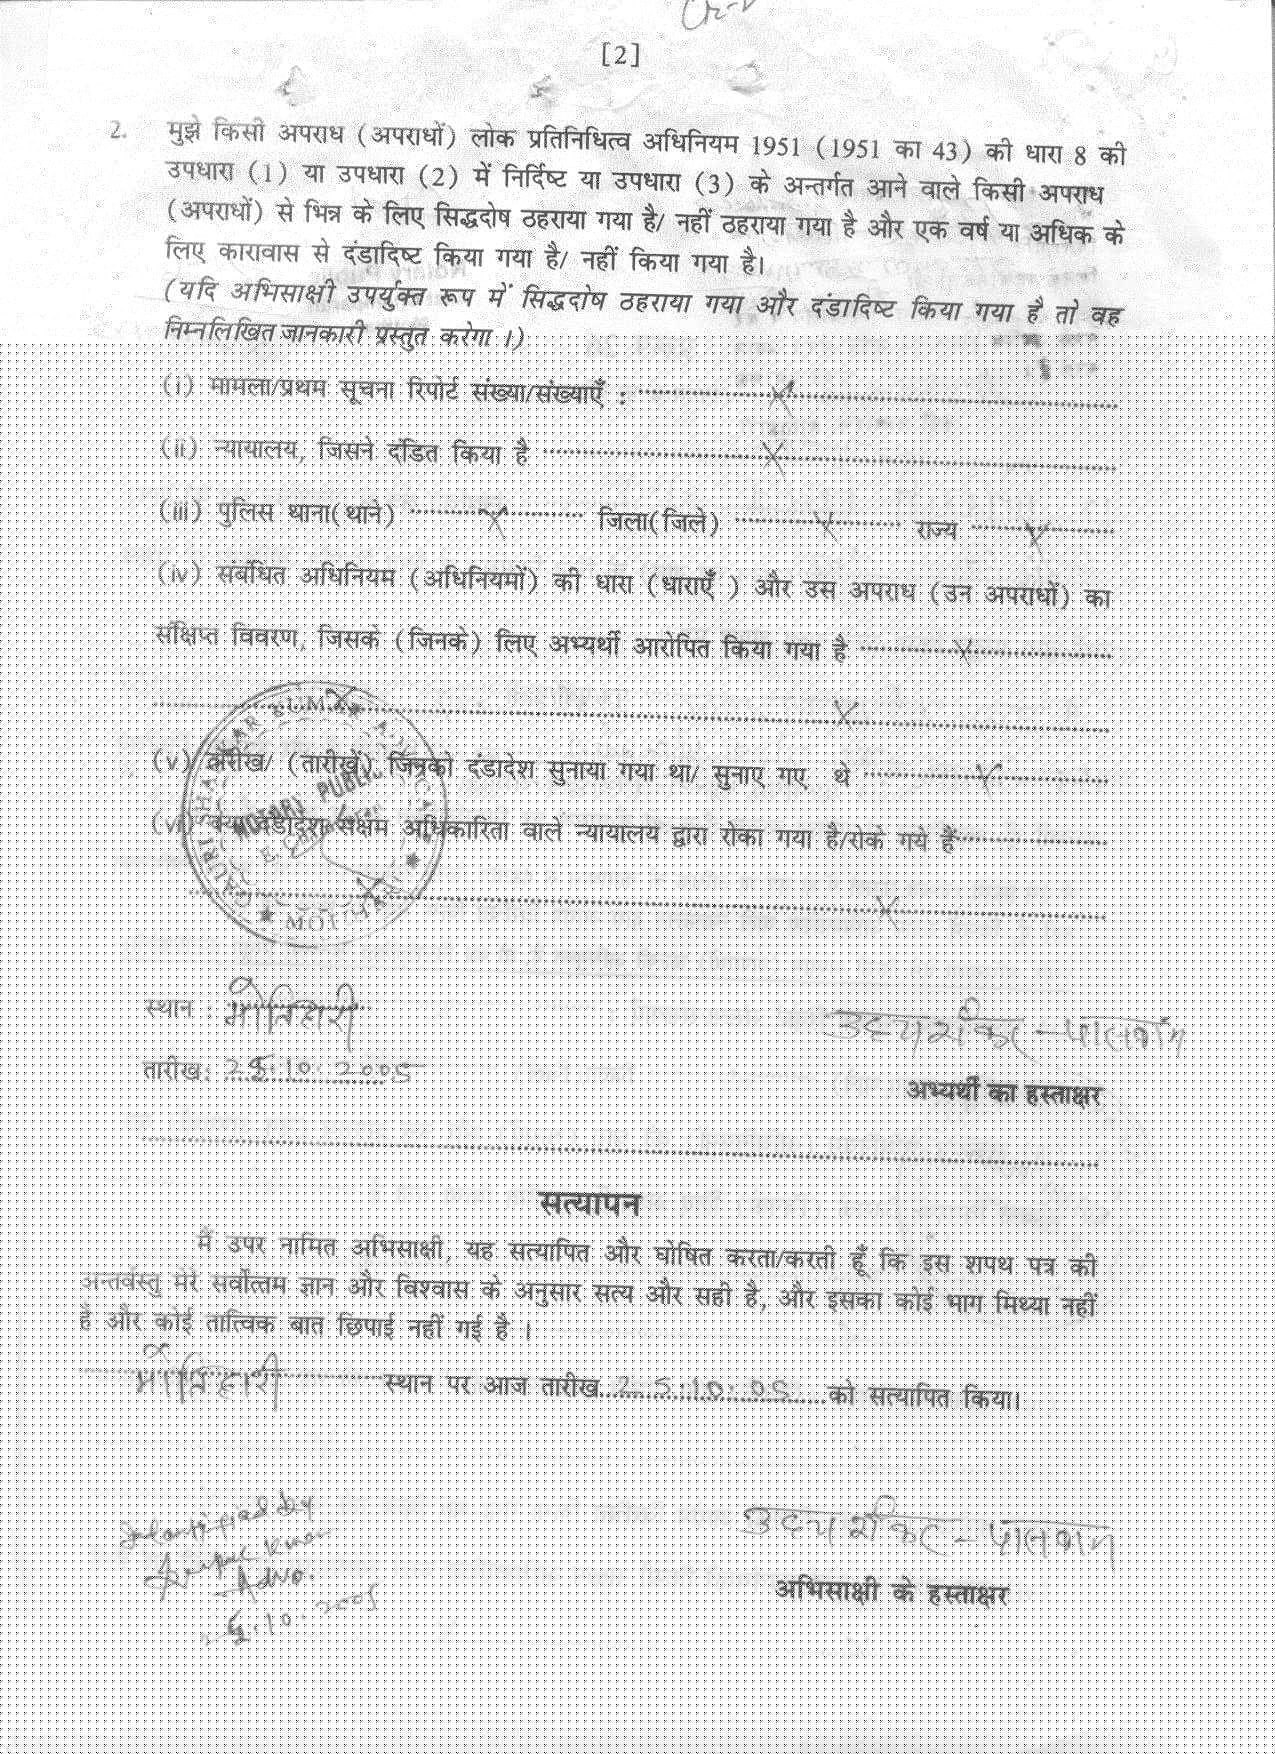 [2]
2. मुझे किसी अपराध (अपराधों) लोक प्रतिनिधित्व अधिनियम 1951 (1951 का 43) की धारा 8 की
उपधारा (1) या उपधारा (2) में निर्दिष्ट या उपधारा (3) के अन्तर्गत आने वाले किसी अपराध
(अपराधों) से भिन्न के लिए सिद्धदोष ठहराया गया है/ नहीं ठहराया गया है और एक वर्ष या अधिक के
लिए कारावास से दंडादिष्ट किया गया है/ नहीं किया गया है।
(यदि अभिसाक्षी उपर्युक्त रूप में सिद्धदोष ठहराया गया और दंडादिष्ट किया गया है तो वह
निम्नलिखित जानकारी प्रस्तुत करेगा ।)
(i) मामला/प्रथम सूचना रिपोर्ट संख्या/संख्याएँ : X
(ii) न्यायालय, जिसने दंडित किया है X
(iii) पुलिस थाना(थाने) X जिला(जिले) X राज्य X
(iv) संबंधित अधिनियम (अधिनियमों) की धारा (धाराएँ ) और उस अपराध (उन अपराधों) का
संक्षिप्त विवरण, जिसके (जिनके) लिए अभ्यर्थी आरोपित किया गया है X
X X
(v) तारीख/ (तारीखें) जिनको दंडादेश सुनाया गया था/ सुनाए गए थे X
(vi) क्या दंडादेश सक्षम अधिकारिता वाले न्यायालय द्वारा रोका गया है/रोके गये हैं
X X
GAURI SHANKAR KUMAR
NOTARY PUBLIC
स्थान : मोतिहारी
उदय शंकर - पासवान
तारीख: 25.10.2005
अभ्यर्थी का हस्ताक्षर
सत्यापन
मैं उपर नामित अभिसाक्षी, यह सत्यापित और घोषित करता/करती हूँ कि इस शपथ पत्र की
अन्तर्वस्तु मेरे सर्वोत्तम ज्ञान और विश्वास के अनुसार सत्य और सही है, और इसका कोई भाग मिथ्या नहीं
है और कोई तात्विक बात छिपाई नहीं गई है ।
मोतिहारी स्थान पर आज तारीख 25.10.05 को सत्यापित किया।
Identified by
उदय शंकर - पासवान
Adv.
अभिसाक्षी के हस्ताक्षर
10.2005